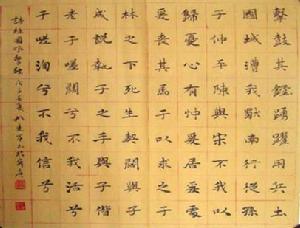 擊鼓其鏜踊躍用兵土
國城漕我獨南行從孫
子仲平陳與宋不我以
歸憂心有忡爰居爰處
爰喪其馬于以求之于
林之下死生契闊與子
成說執子之手與子偕
老于嗟闊兮不我活兮
于嗟洵兮不我信兮
詩經國風擊鼓